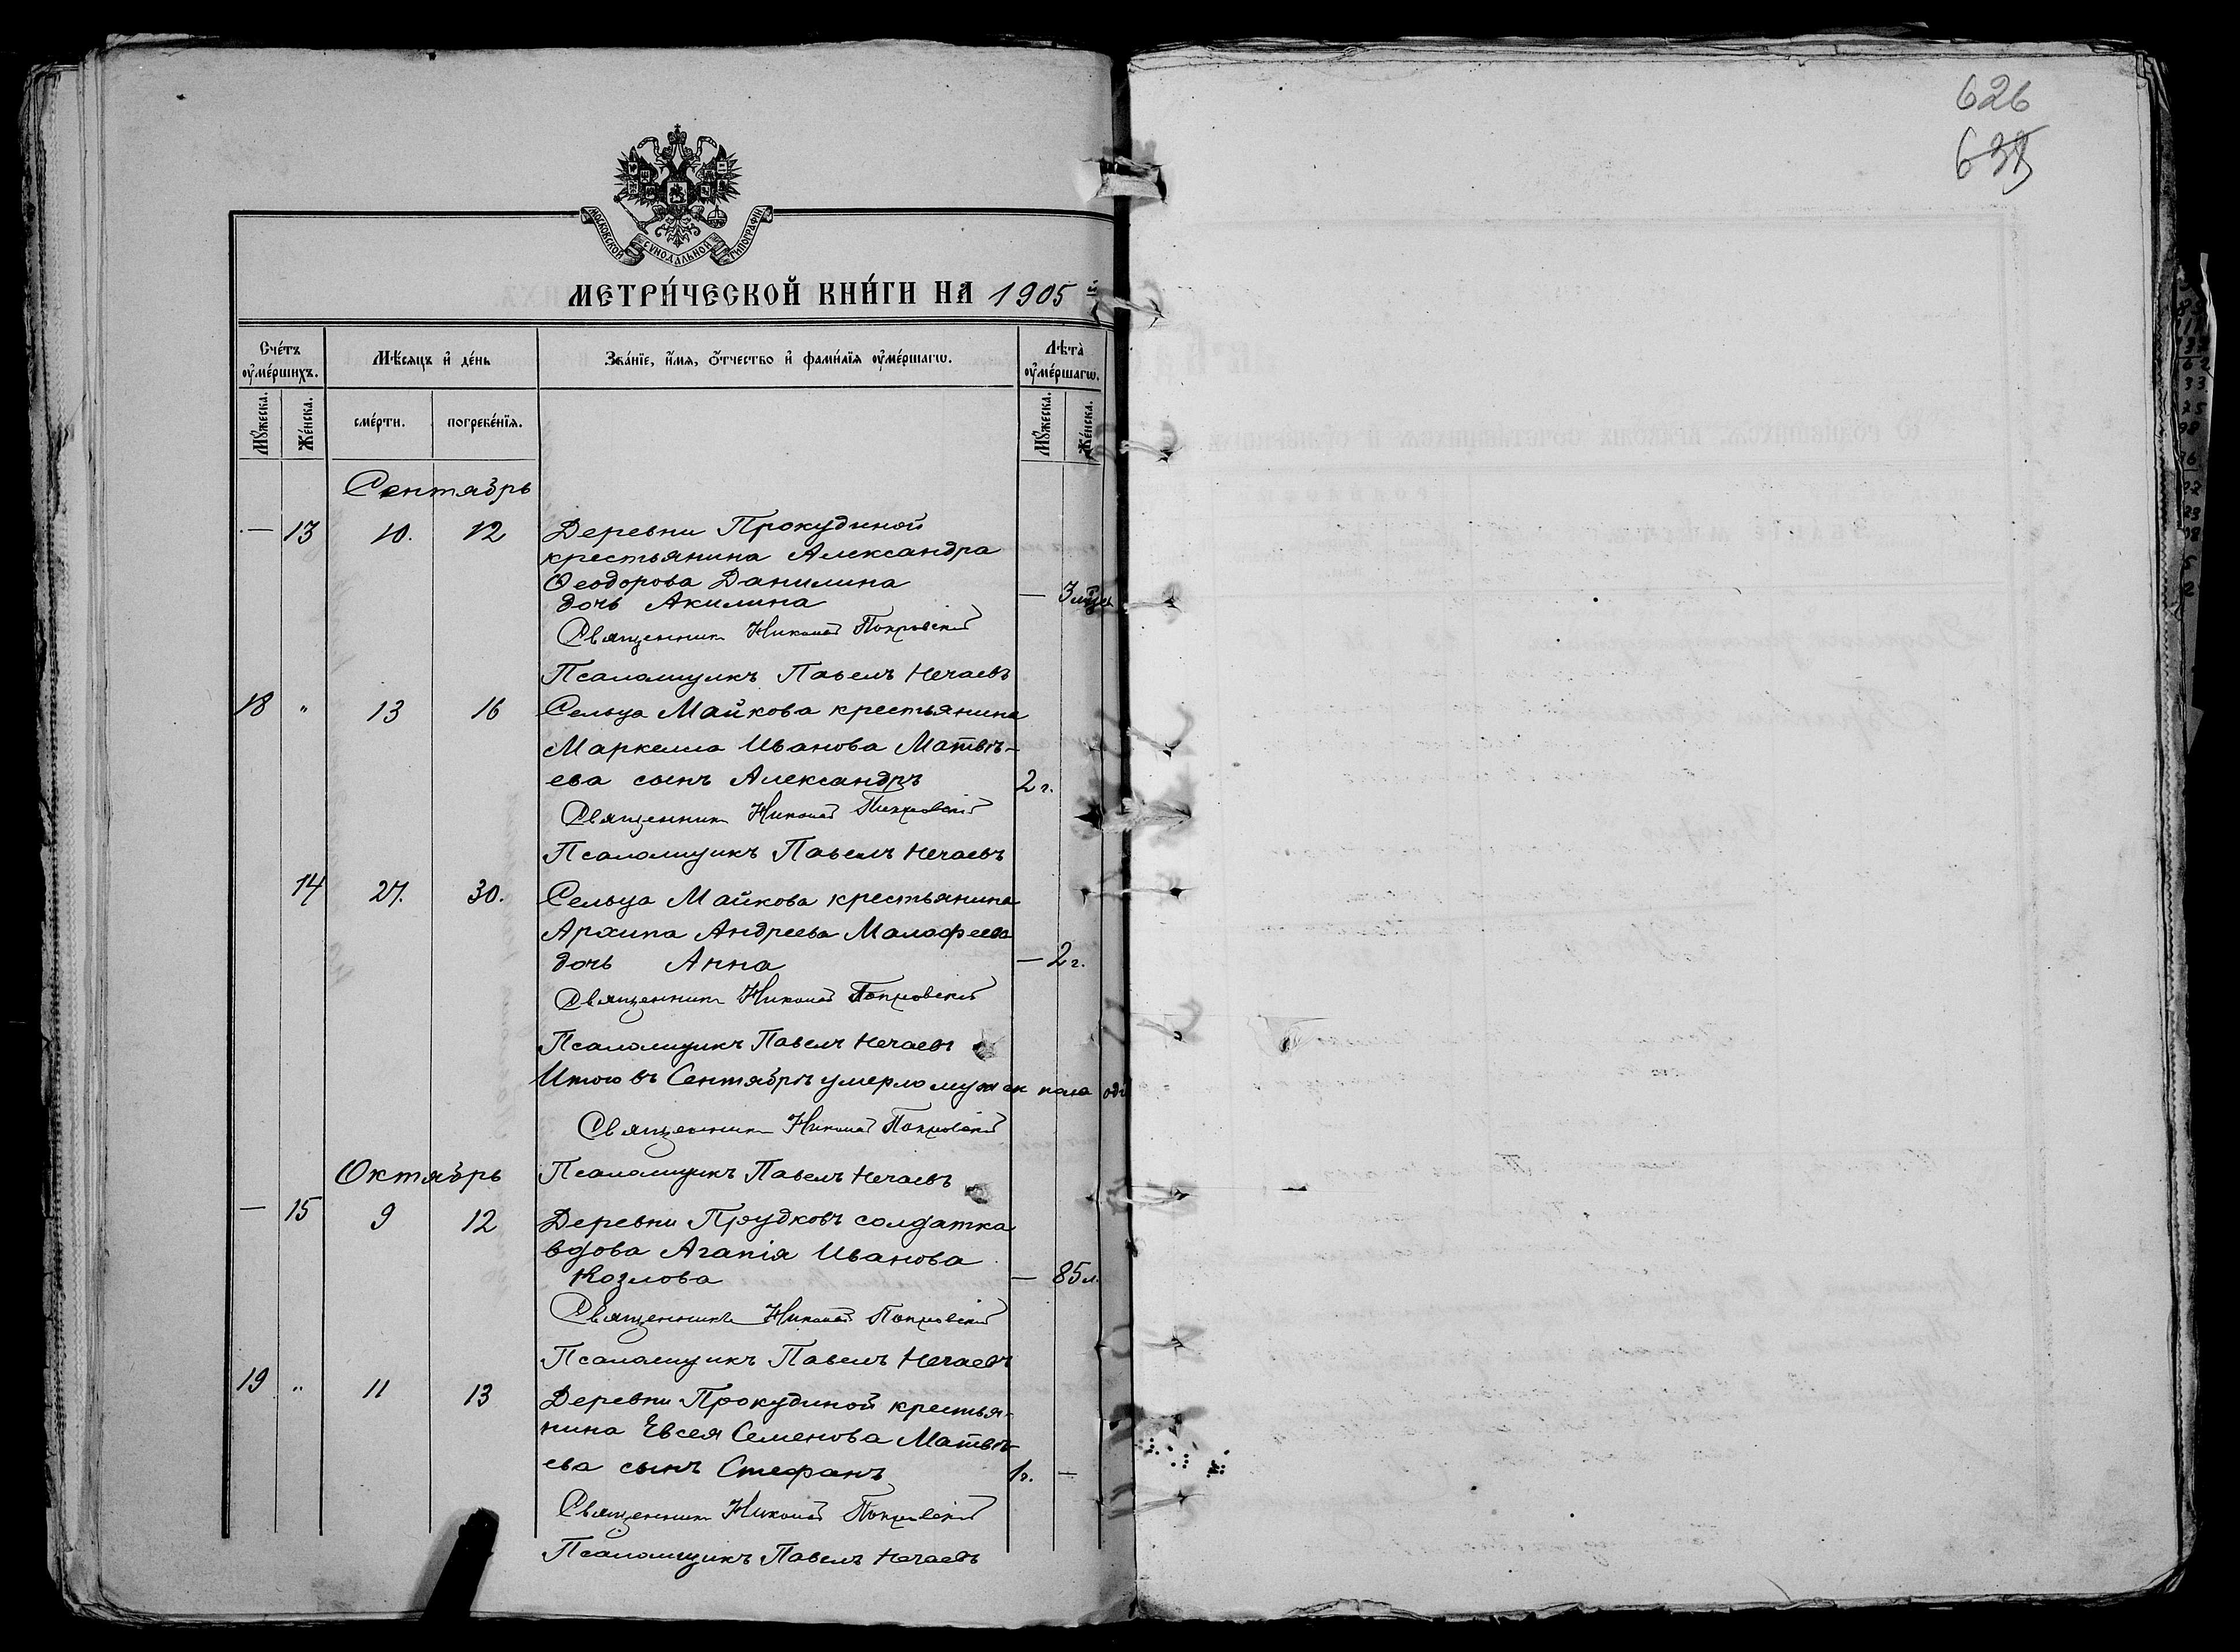 626
МОСКОВСКОЙ СѴНОДАЛЬНОЙ ТИПОГРАФІИ
МЕТРИ́ЧЕСКОЙ КНИ́ГИ НА 1905 й
Сче́тъ ᲂумéршихъ.
Мѣ́сяцъ и де́нь
Зва́нїе, и́мя, о́тчество и фами́лїя ᲂуме́ршагѡ.
Лѣта̀ ᲂуме́ршагѡ.
Мꙋ́жеска.
Же́нска.
сме́рти.
погребе́нїя.
Мꙋ́жеска.
Же́нска.
Сентябрь
— 13 10. 12 Деревни Прокудиной
крестьянина Александра
Ѳеодорова Данилина
дочь Акилина — 3 мѣц
Священникъ Николай Покровскій
Псаломщикъ Павелъ Нечаевъ
18 " 13 16 Сельца Майкова крестьянина
Маркелла Иванова Матвѣ-
ева сынъ Александръ 2 г.
Священникъ Николай Покровскій
Псаломщикъ Павелъ Нечаевъ
14 27. 30. Сельца Майкова крестьянина
Архипа Андреева Малафеева
дочь Анна — 2 г.
Священникъ Николай Покровскій
Псаломщикъ Павелъ Нечаевъ
Итого въ Сентябрѣ умерло мужск пола оди
Священникъ Николай Покровскій
Псаломщикъ Павелъ Нечаевъ
Октябрь
— 15 9 12 Деревни Прудковъ солдатка
вдова Агапія Иванова
Козлова — 85 л.
Священникъ Николай Покровскій
Псаломщикъ Павелъ Нечаевъ
19 " 11 13 Деревни Прокудиной крестья-
нина Евсея Семенова Матвѣ-
ева сынъ Стефанъ 1 г. —
Священникъ Николай Покровскій
Псаломщикъ Павелъ Нечаевъ